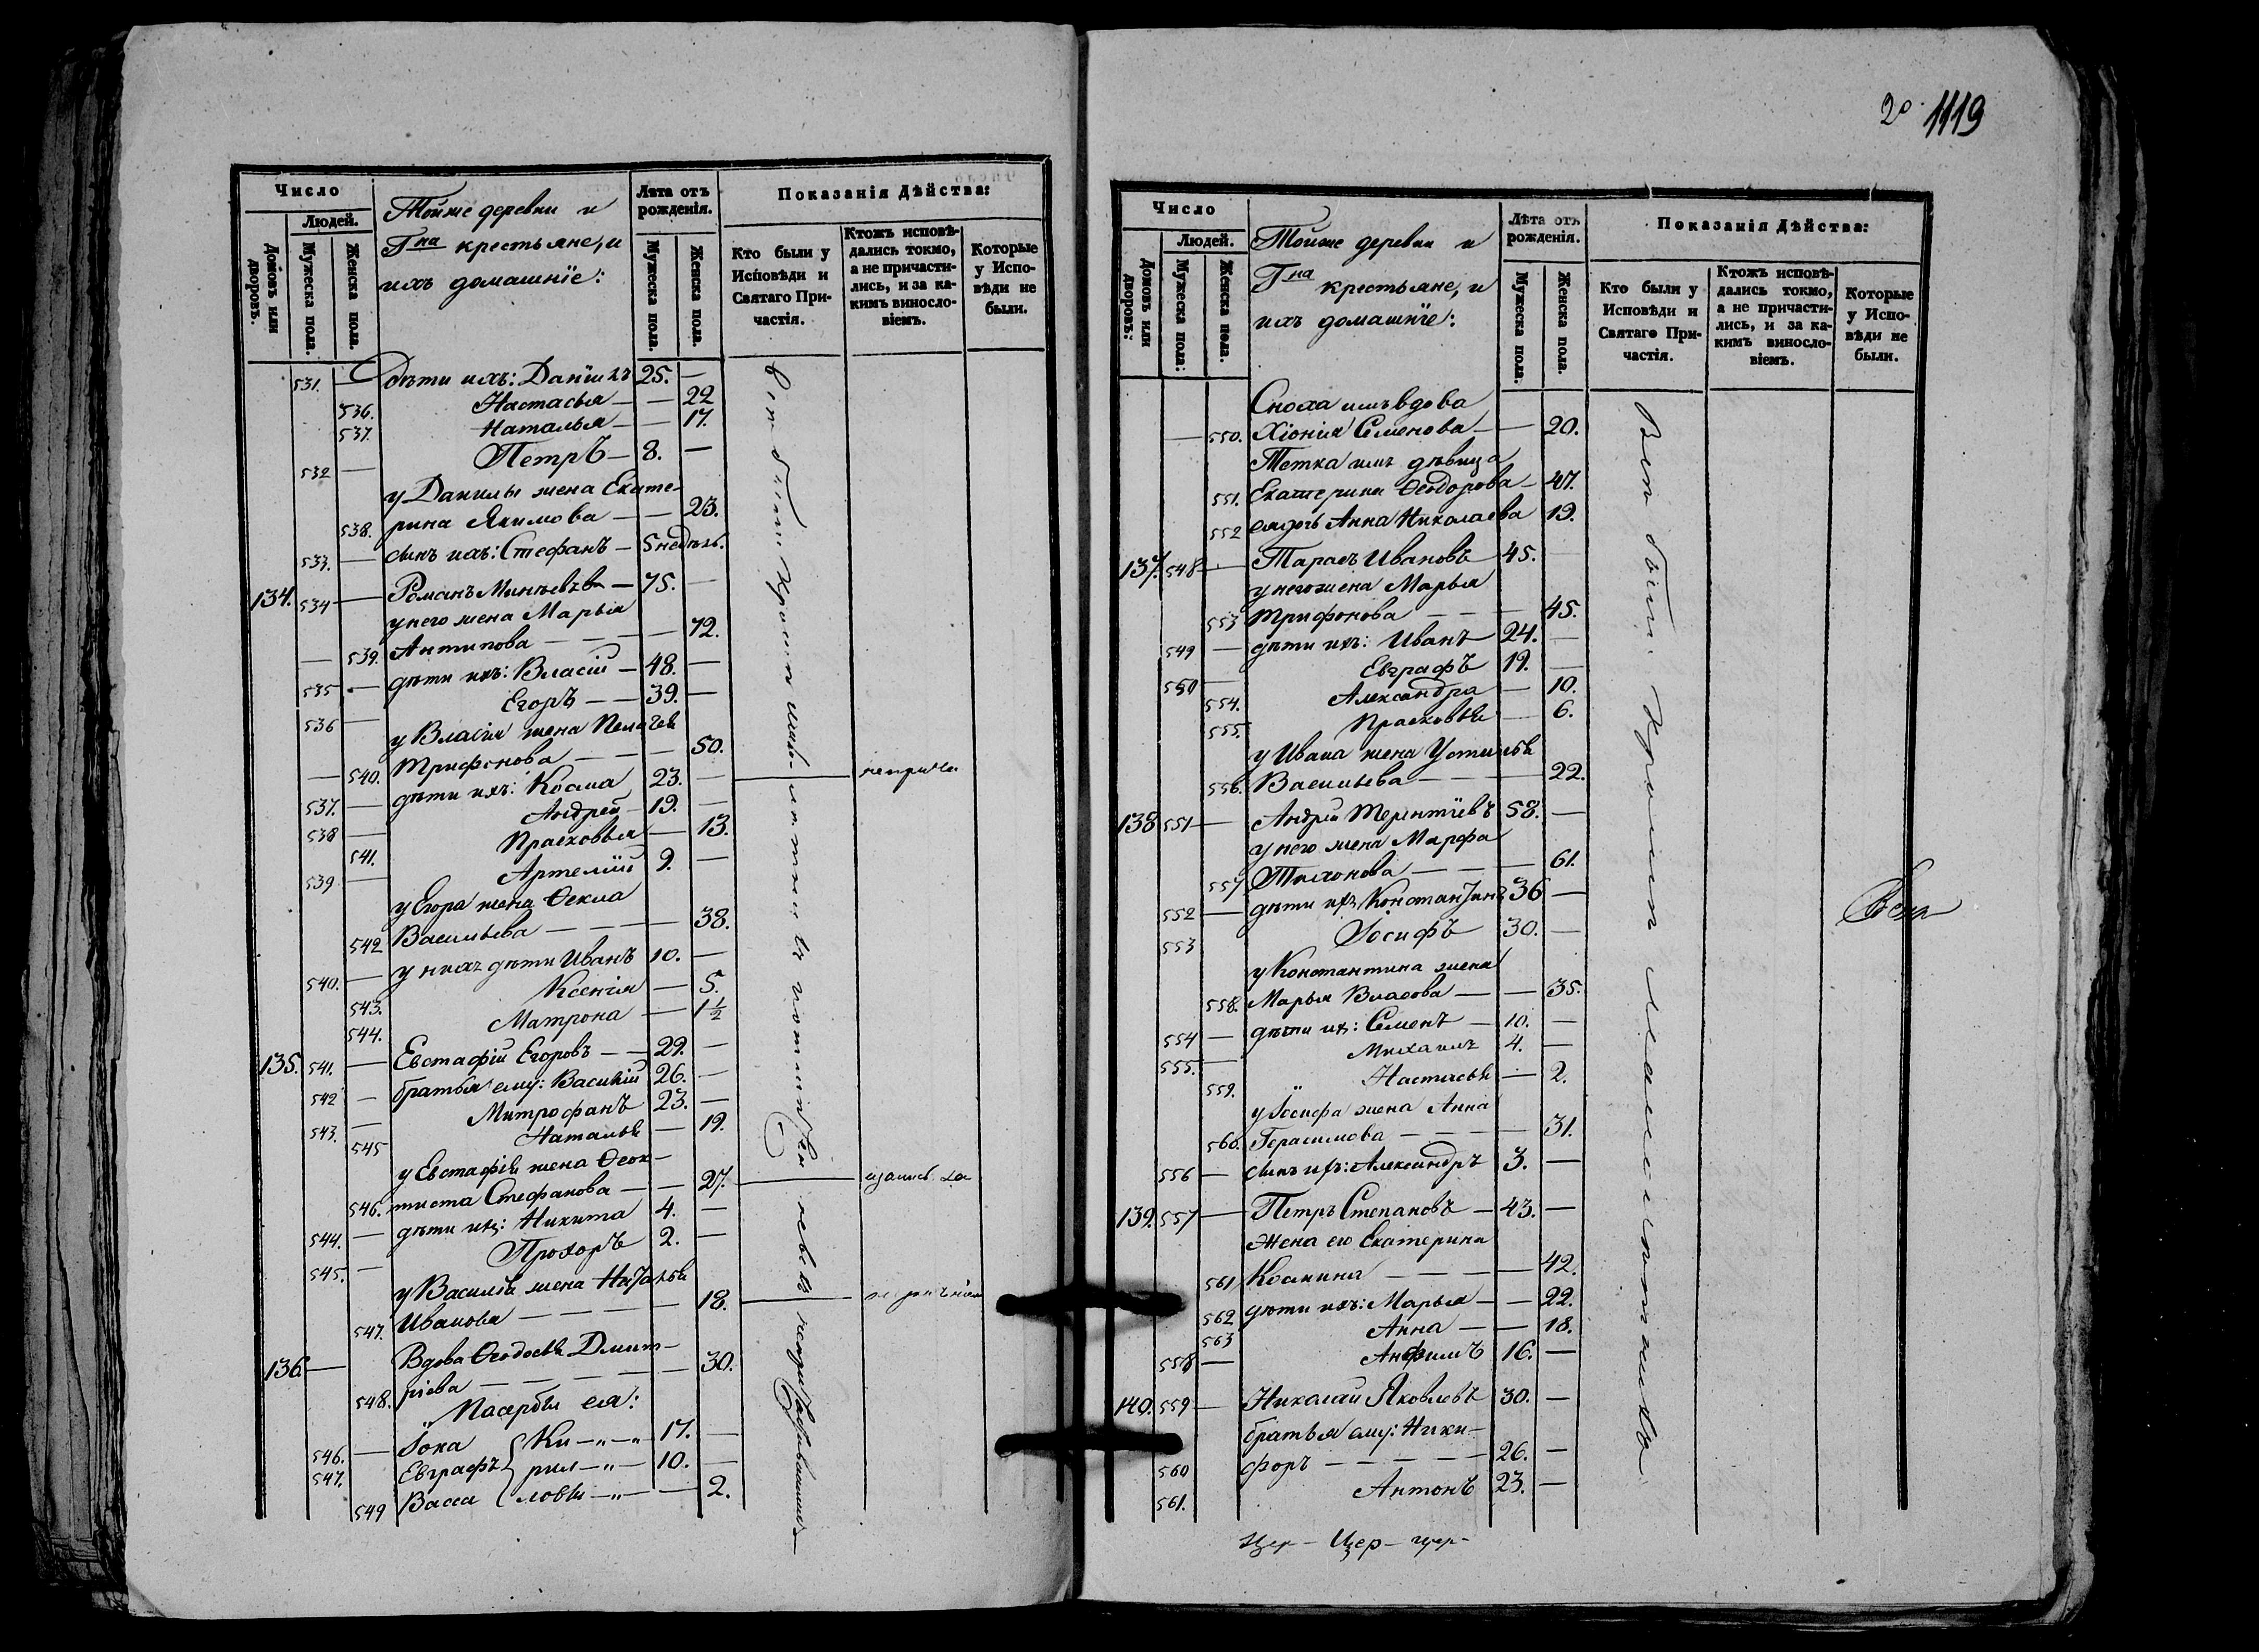 Число
Людей.
Домовъ или дворовъ.
Мужеска пола.
Женска пола.
Тойже деревни и
Гна крестьяне, и
ихъ домашніе:
Лѣта отъ рожденія.
Мужеска пола.
Женска пола.
Показанія Дѣйства:
Кто были у Исповѣди и Святаго При-частія.
Ктожъ исповѣ-дались токмо, а не причасти-лись, и за ка-кимъ виносло-віемъ.
Которые у Испо-вѣди не были.
531. — дѣти ихъ: Даніилъ 25. —
536. Настасья — — 22
537. Наталья — — 17.
532 — Петръ — 8. —
у Данилы жена Екате-
538. рина Якимова — — 23.
533. — сынъ ихъ: Стефанъ — 5 недѣль.
134. 534 — Романъ — 75. —
у него жена Марья
— 539. Антипова — — — — 72.
535 — дѣти ихъ: Власій — 48. —
536 — Егоръ — — 39. —
у Власія жена Пелагея
— 540. Трифонова — — — 50.
537. — дѣти ихъ: Косма 23. —
538 — Андрей — 19. —
541. Прасковья — 13.
539 — Артемій 9. —
у Егора жена Ѳекла
542 Васильева — — — — 38.
540. — у нихъ дѣти Иванъ 10. —
543. Ксенія — 5.
544. Матрона — 1½
135. 541. — Евстафій Егоровъ — — 29. —
542 — братья ему: Василій 26. —
543. — Митрофанъ 23. —
545 Наталья — 19.
у Евстафія жена Ѳеок-
546. тиста Стефанова — — 27.
544. — дѣти ихъ: Никита 4. —
545. — Прохоръ 2. —
у Василья жена Наталья
547. Иванова — — — — 18.
136. — Вдова Ѳеодосья Дмит-
548. ріева — — — — — 30.
Пасербы ея:
546. — Іона Ки — „ — „ 17. —
547. Евграфъ рил — „ — 10. —
549 Васса ловы — „ — — 2.
20. 1119
Число
Людей.
Домовъ или дворовъ:
Мужеска пола:
Женска пола.
Тойже деревни и
Гна крестьяне, и
ихъ домашніе:
Лѣта отъ рожденія.
Мужеска пола.
Женска пола.
Показанія Дѣйства:
Кто были у Исповѣди и Святаго При-частія.
Ктожъ исповѣ-дались токмо, а не причасти-лись, и за ка-кимъ виносло-віемъ.
Которые у Испо-вѣди не были.
Сноха имъ вдова
— 550. Хіонія Семенова — — 20.
Тетка имъ дѣвица
551. Екатерина Ѳеодорова — 47.
552 Анна Николаева 19.
137. 548 — Тарасъ Ивановъ 45. —
у него жена Марья
553 Трифонова — — — 45.
549 — дѣти ихъ: Иванъ 24. —
550 — Евграфъ 19. —
554. Александра — 10.
555. Прасковья — 6.
у Ивана жена Устинья
556. Васильева — — — — 22.
138 551 — Андрей Терентіевъ 58. —
у него жена Марфа
557 Тихонова — — — 61.
552 — дѣти ихъ Константинъ 36 —
553 Іосифъ 30. —
у Константина жена
558. Марья Власова — — 35.
554 — дѣти ихъ: Семенъ — 10. —
555. — Михаилъ 4. —
559. Настасья — 2.
у Іосифа жена Анна
560. Герасимова — — — — 31.
556 — сынъ ихъ: Александръ 3. —
139. 557 — Петръ Степановъ — 43. —
Жена его Екатерина
561 Космина — — — — 42.
562 дѣти ихъ: Марья — — 22.
563 Анна — — 18.
558 — Анфимъ 16. —
140. 559 — Николай Яковлевъ 30. —
братья ему: Ники-
560 форъ — — — — — 26. —
561. Антонъ 23. —